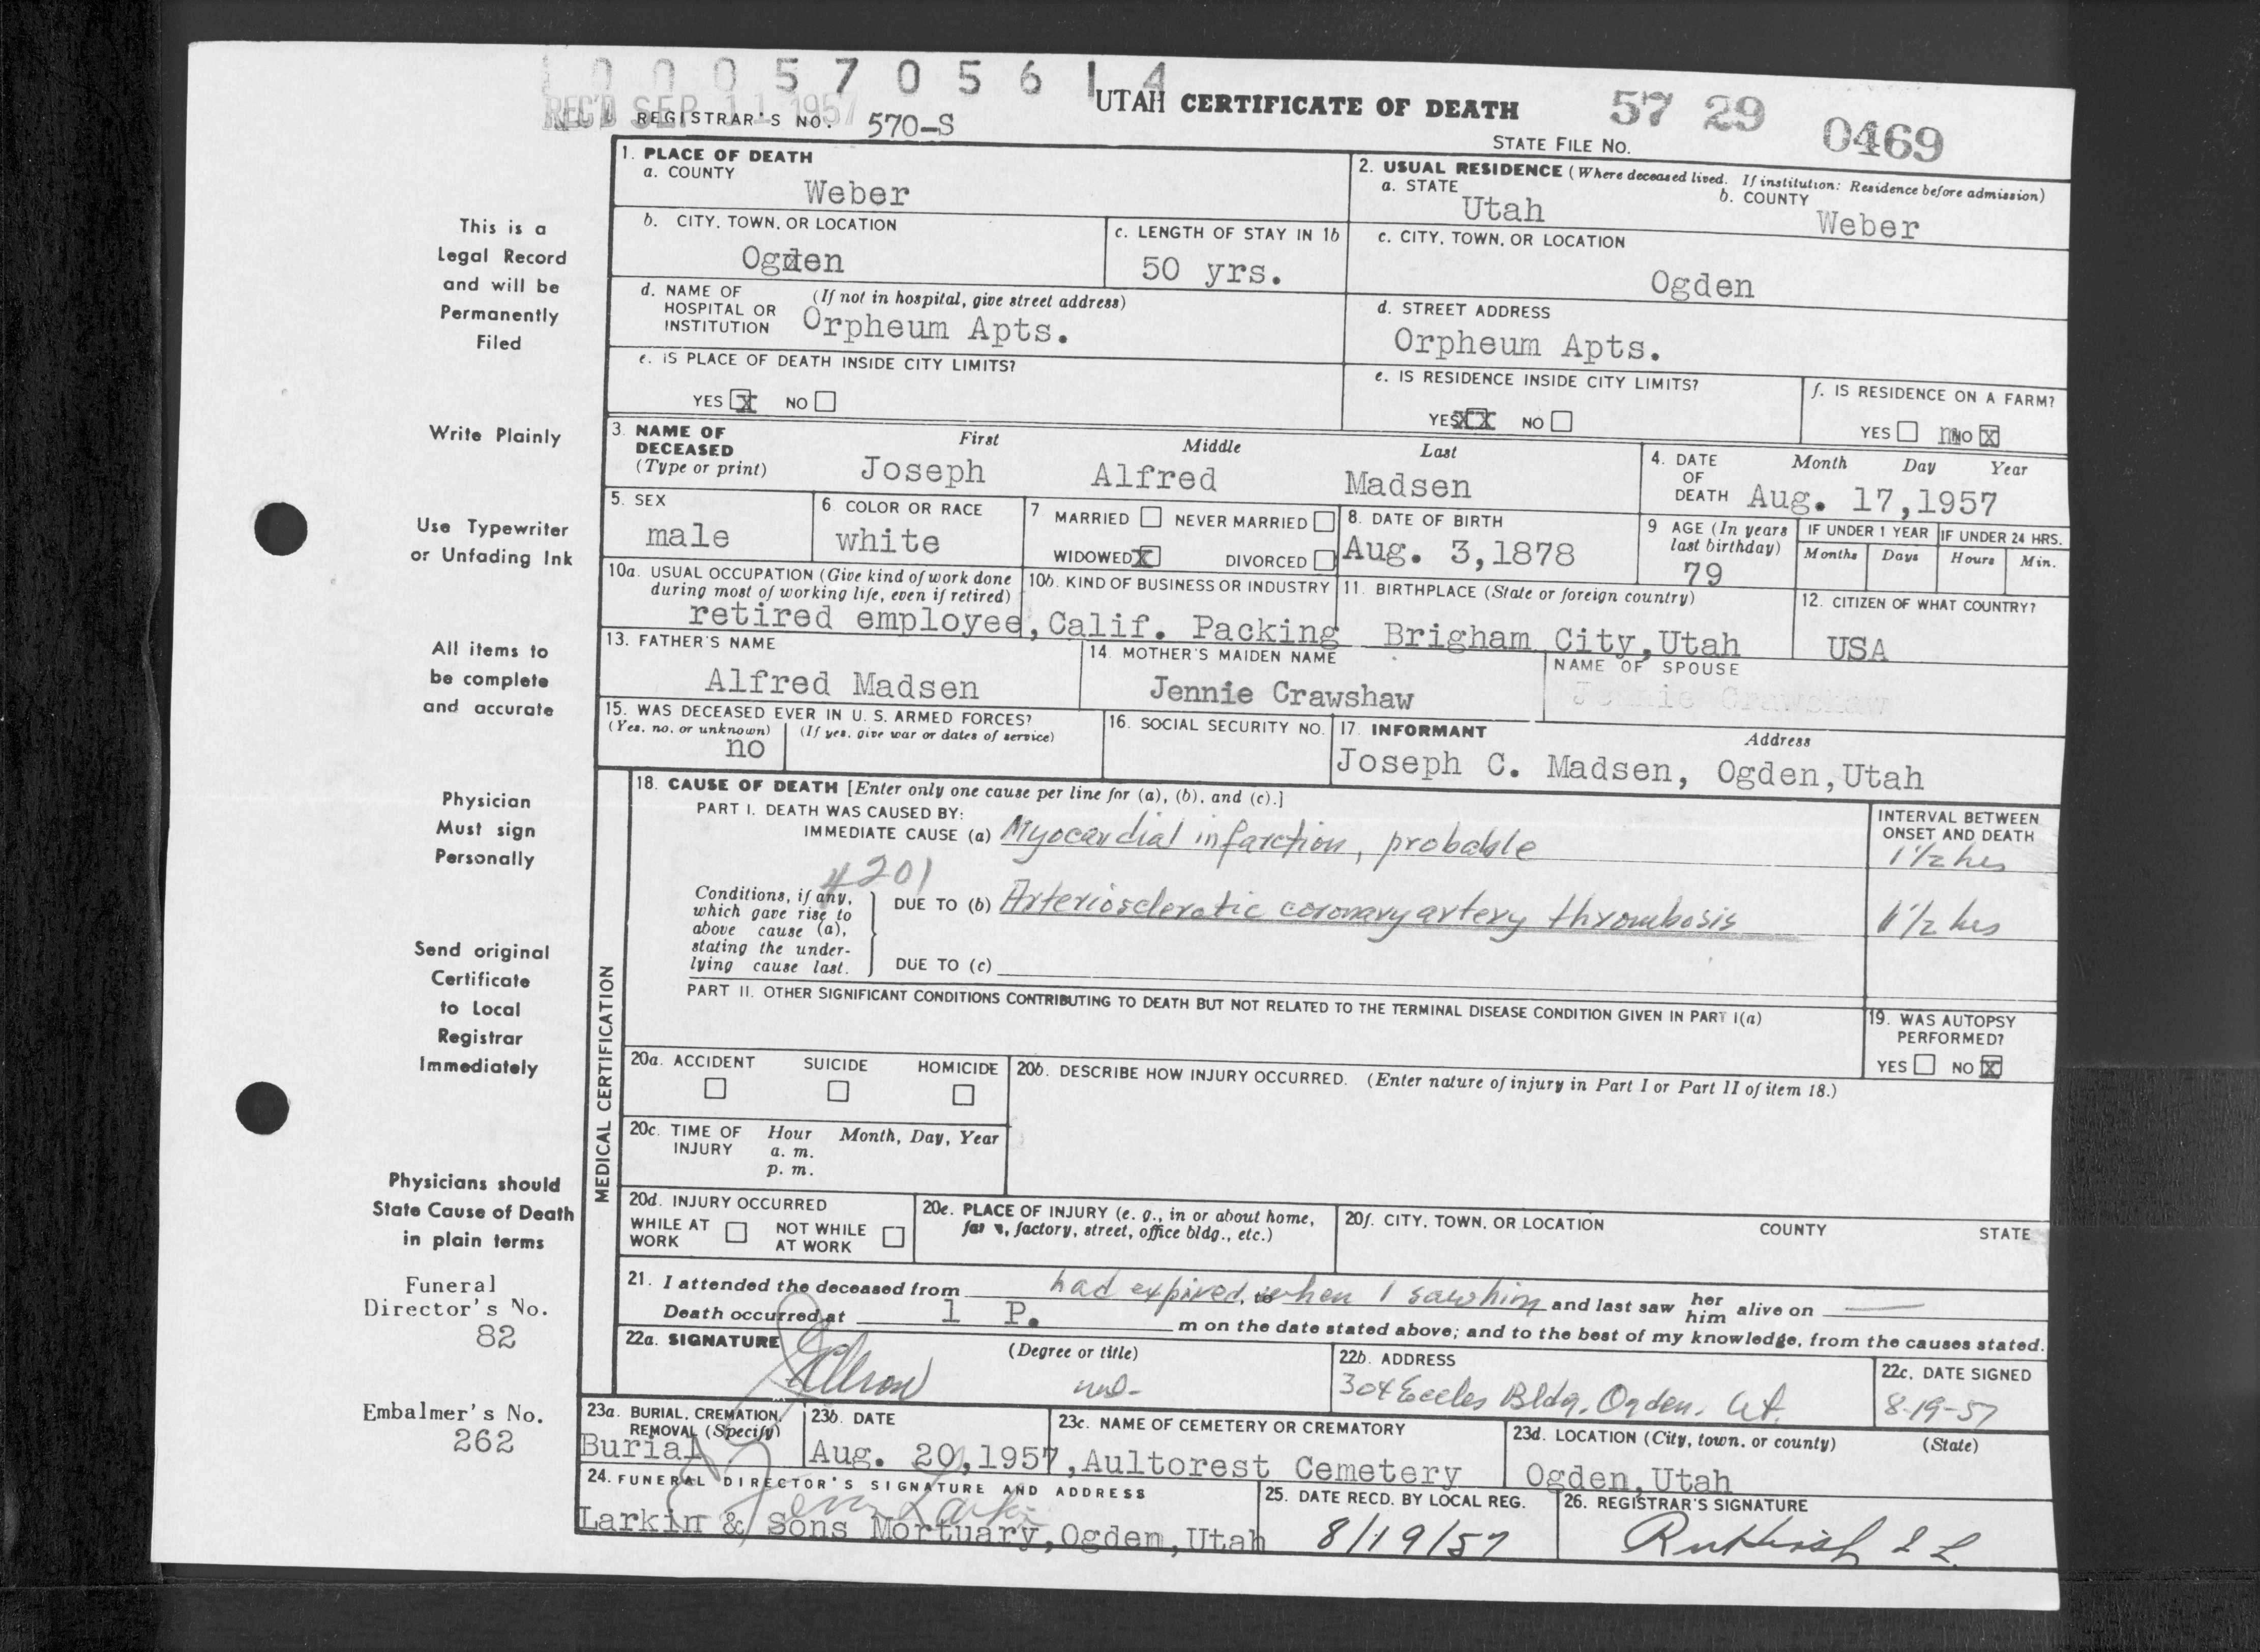 1 0 0 0 5 7 0 5 6 1 4
REC'D SEP 11 1957
REGISTRAR'S NO. 570-S
UTAH CERTIFICATE OF DEATH
57 29 0469
STATE FILE NO.
This is a
Legal Record
and will be
Permanently
Filed
Write Plainly
Use Typewriter
or Unfading Ink
All items to
be complete
and accurate
Physician
Must sign
Personally
Send original
Certificate
to Local
Registrar
Immediately
Physicians should
State Cause of Death
in plain terms
Funeral
Director's No.
82
Embalmer's No.
262
1. PLACE OF DEATH
a. COUNTY
Weber
2. USUAL RESIDENCE (Where deceased lived. If institution: Residence before admission)
a. STATE b. COUNTY
Utah Weber
b. CITY, TOWN, OR LOCATION
Ogden
c. LENGTH OF STAY IN 1b
50 yrs.
c. CITY, TOWN, OR LOCATION
Ogden
d. NAME OF (If not in hospital, give street address)
HOSPITAL OR
INSTITUTION Orpheum Apts.
d. STREET ADDRESS
Orpheum Apts.
e. IS PLACE OF DEATH INSIDE CITY LIMITS?
YES X NO
e. IS RESIDENCE INSIDE CITY LIMITS?
YES XX NO
f. IS RESIDENCE ON A FARM?
YES NO X
3. NAME OF First Middle Last
DECEASED
(Type or print) Joseph Alfred Madsen
4. DATE Month Day Year
OF
DEATH Aug. 17,1957
5. SEX
male
6 COLOR OR RACE
white
7 MARRIED NEVER MARRIED
WIDOWED X DIVORCED
8. DATE OF BIRTH
Aug. 3,1878
9 AGE (In years
last birthday)
79
IF UNDER 1 YEAR IF UNDER 24 HRS.
Months Days Hours Min.
10a. USUAL OCCUPATION (Give kind of work done
during most of working life, even if retired)
10b. KIND OF BUSINESS OR INDUSTRY
retired employee, Calif. Packing
11. BIRTHPLACE (State or foreign country)
Brigham City,Utah
12. CITIZEN OF WHAT COUNTRY?
USA
13. FATHER'S NAME
Alfred Madsen
14. MOTHER'S MAIDEN NAME
Jennie Crawshaw
NAME OF SPOUSE
Jennie Crawshaw
15. WAS DECEASED EVER IN U. S. ARMED FORCES?
(Yes, no, or unknown) (If yes, give war or dates of service)
no
16. SOCIAL SECURITY NO.
17. INFORMANT Address
Joseph C. Madsen, Ogden,Utah
MEDICAL CERTIFICATION
18. CAUSE OF DEATH [Enter only one cause per line for (a), (b), and (c).]
PART I. DEATH WAS CAUSED BY:
IMMEDIATE CAUSE (a) Myocardial infarction, probable
INTERVAL BETWEEN
ONSET AND DEATH
1 1/2 hrs
4201
Conditions, if any,
which gave rise to
above cause (a),
stating the under-
lying cause last.
DUE TO (b) Arteriosclerotic coronary artery thrombosis
1 1/2 hrs
DUE TO (c)
PART II. OTHER SIGNIFICANT CONDITIONS CONTRIBUTING TO DEATH BUT NOT RELATED TO THE TERMINAL DISEASE CONDITION GIVEN IN PART I(a)
19. WAS AUTOPSY
PERFORMED?
YES NO X
20a. ACCIDENT SUICIDE HOMICIDE
20b. DESCRIBE HOW INJURY OCCURRED. (Enter nature of injury in Part I or Part II of item 18.)
20c. TIME OF Hour Month, Day, Year
INJURY a. m.
p. m.
20d. INJURY OCCURRED
WHILE AT NOT WHILE
WORK AT WORK
20e. PLACE OF INJURY (e. g., in or about home,
farm, factory, street, office bldg., etc.)
20f. CITY, TOWN, OR LOCATION COUNTY STATE
21. I attended the deceased from had expired, when I saw him and last saw her him alive on —
Death occurred at 1 P. m on the date stated above; and to the best of my knowledge, from the causes stated.
22a. SIGNATURE (Degree or title)
md-
22b. ADDRESS
304 Eccles Bldg. Ogden. Ut.
22c. DATE SIGNED
8-19-57
23a. BURIAL, CREMATION,
REMOVAL (Specify)
Burial
23b. DATE
Aug. 20,1957,
23c. NAME OF CEMETERY OR CREMATORY
Aultorest Cemetery
23d. LOCATION (City, town, or county) (State)
Ogden,Utah
24. FUNERAL DIRECTOR'S SIGNATURE AND ADDRESS
Larkin
Larkin & Sons Mortuary,Ogden,Utah
25. DATE RECD. BY LOCAL REG.
8/19/57
26. REGISTRAR'S SIGNATURE